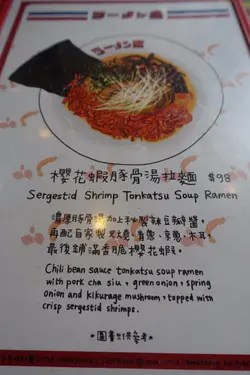 ラーメン
櫻花蝦豚骨湯拉麵 $98
Sergestid Shrimp Tonkatsu Soup Ramen
濃厚豚骨湯加上秘製辣豆瓣醬，
再配自家製叉燒、青蔥、京蔥、木耳，
最後舖滿香脆櫻花蝦。
Chili bean sauce tonkatsu soup ramen
with pork cha siu, green onion, spring
onion and kikurage mushroom, topped with
crisp sergestid shrimps.
*圖畫只供參考*